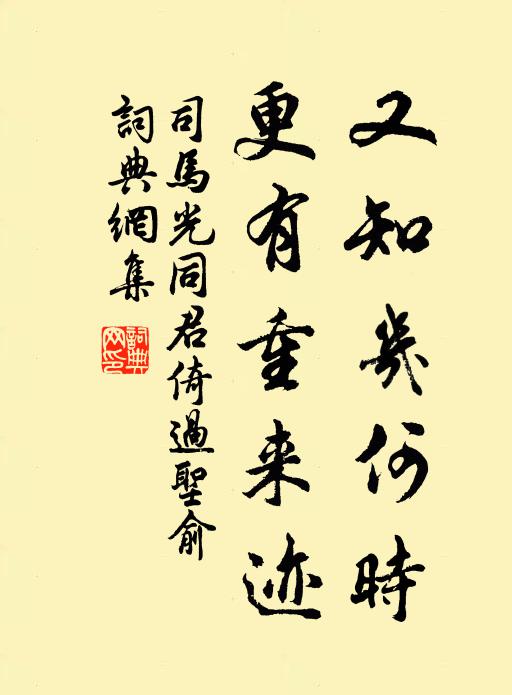 又知幾何時
更有重来迹
司馬光同君倚過聖俞
詞典網集
詞典
网印